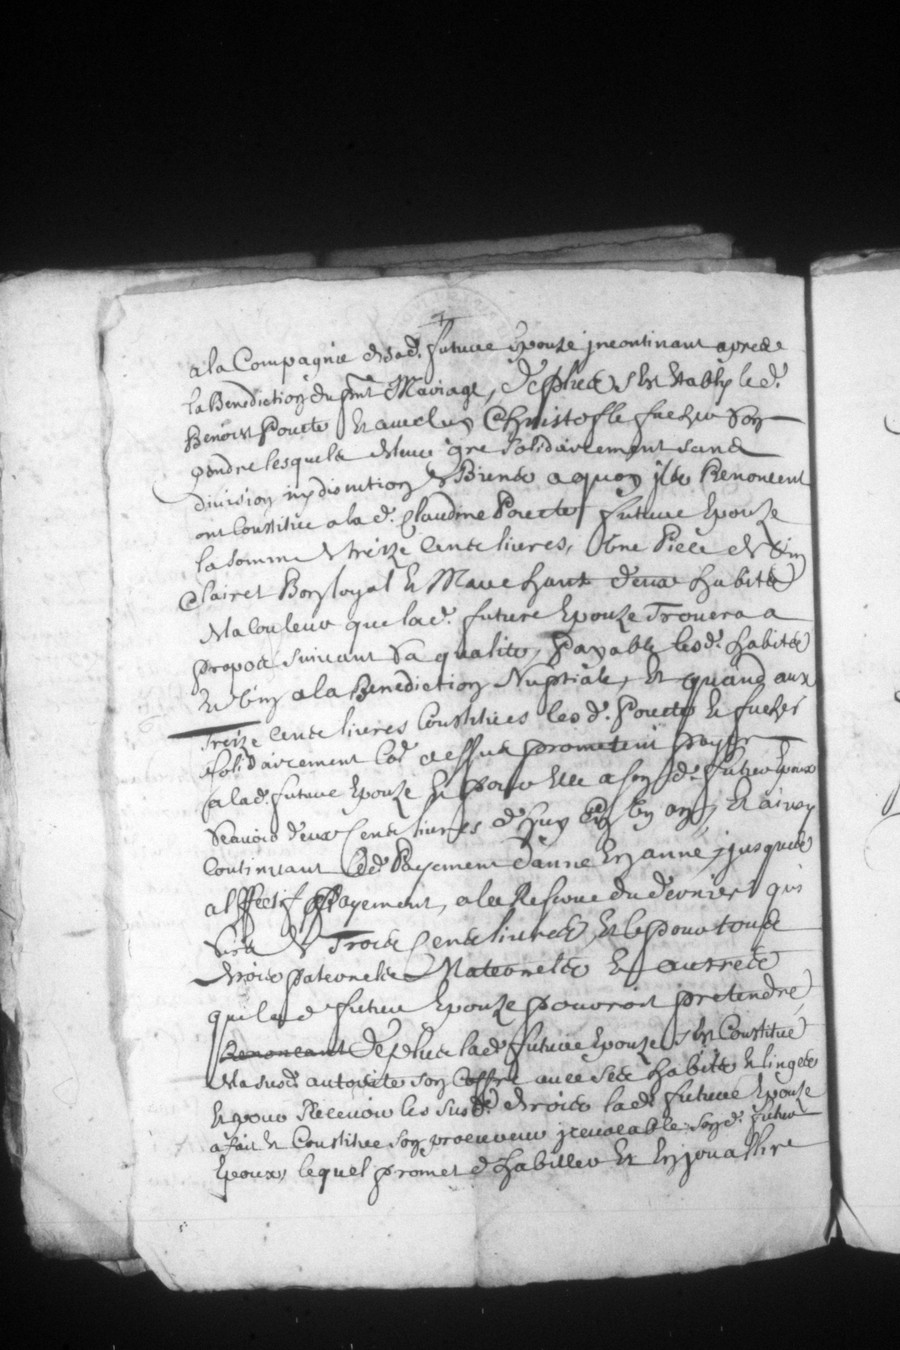 a la Compagnie de sad. future epouze jncontinant apres
la Benediction du pnt Mariage, De plus s'est etably le d.
Benoist Poucte et avec luy Christofle fuchez son
gendre lesquels de leur gre solidairement sans
division ny discution de Biens a quoy jls Renoncent
ont Constitue a la d. Claudine Poucte future Epouze
la somme de treize Cents livres, Une Piece de vin
Clairet Bon loyal et Marchant deux habits
de la Couleur que lad. future Epouze Trouvera a
propos suivant sa qualite, payable lesd. habits
et vin a la Benediction Nuptiale, et quand aux
Treize Cents livres Constitues lesd. Poucte et fuchez
solidairement Co dessus prometent payer
a lad. future Epouze et pour Elle a son d. futur Epoux
Scavoir deux Cents livres d'huy en un an, et ainsy
Continuant led. Payement d'anne en anne jusques
a l'effectif payement, a la Reserve du dernier qui
sera de Trois Cents livres, et ce pour tous
droits paternels Maternels et autres
que lad. future Epouze pouvroit pretendre,
Renoncant De plus lad. future Epouze s'est Constitue
de la susd. autorite son Coffre avec ses habits et linges
et pour Recevoir les susd. droits lad. future Epouze
a fait et Constitue son procureur jrevocable sond. futur
Epoux, lequel promet d'habiller et Enjoualler